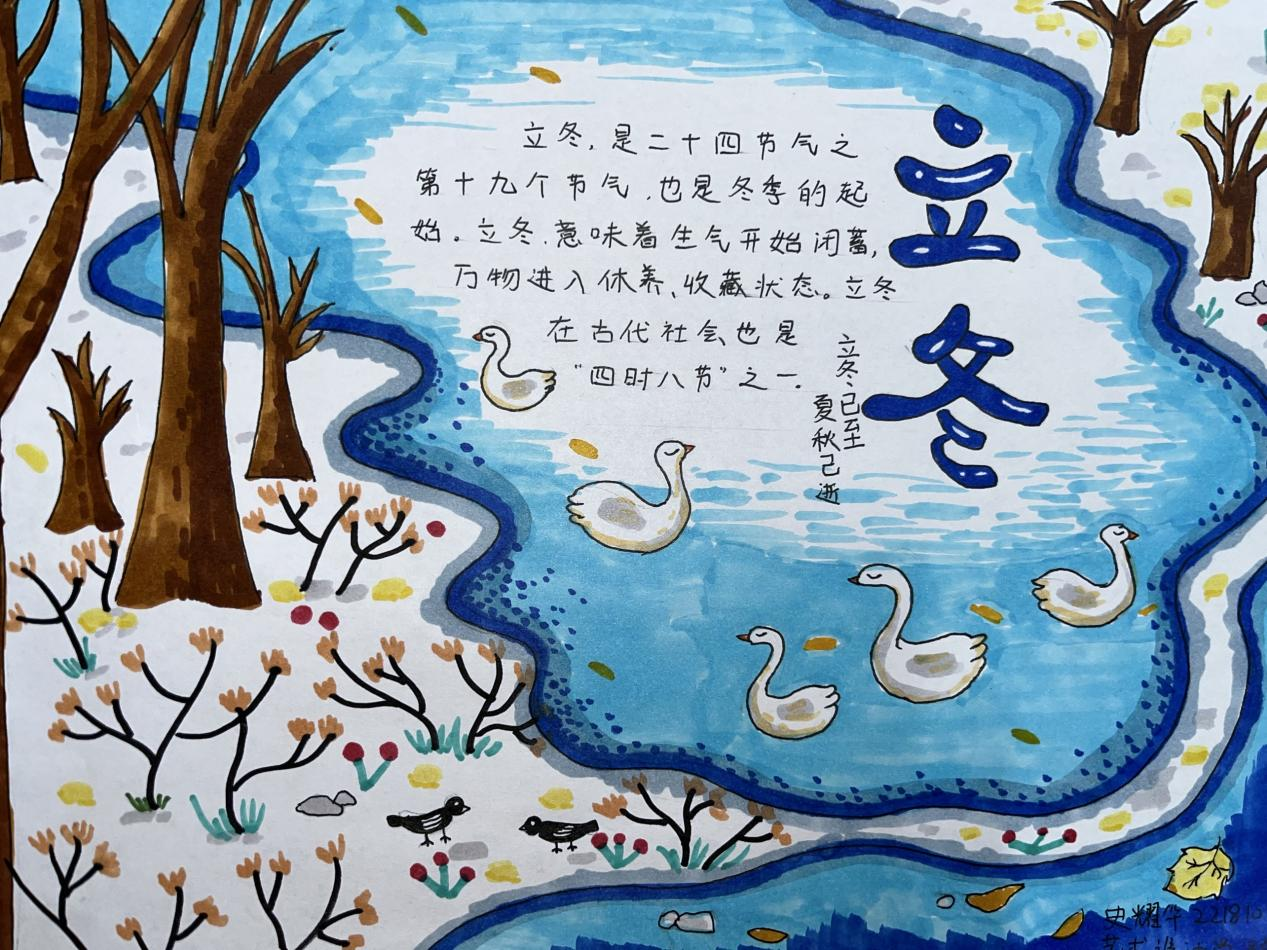 立冬
立冬，是二十四节气之
第十九个节气，也是冬季的起
始。立冬，意味着生气开始闭蓄，
万物进入休养、收藏状态。立冬
在古代社会也是
“四时八节”之一。
立冬、已至
夏秋已逝
史耀华 221810